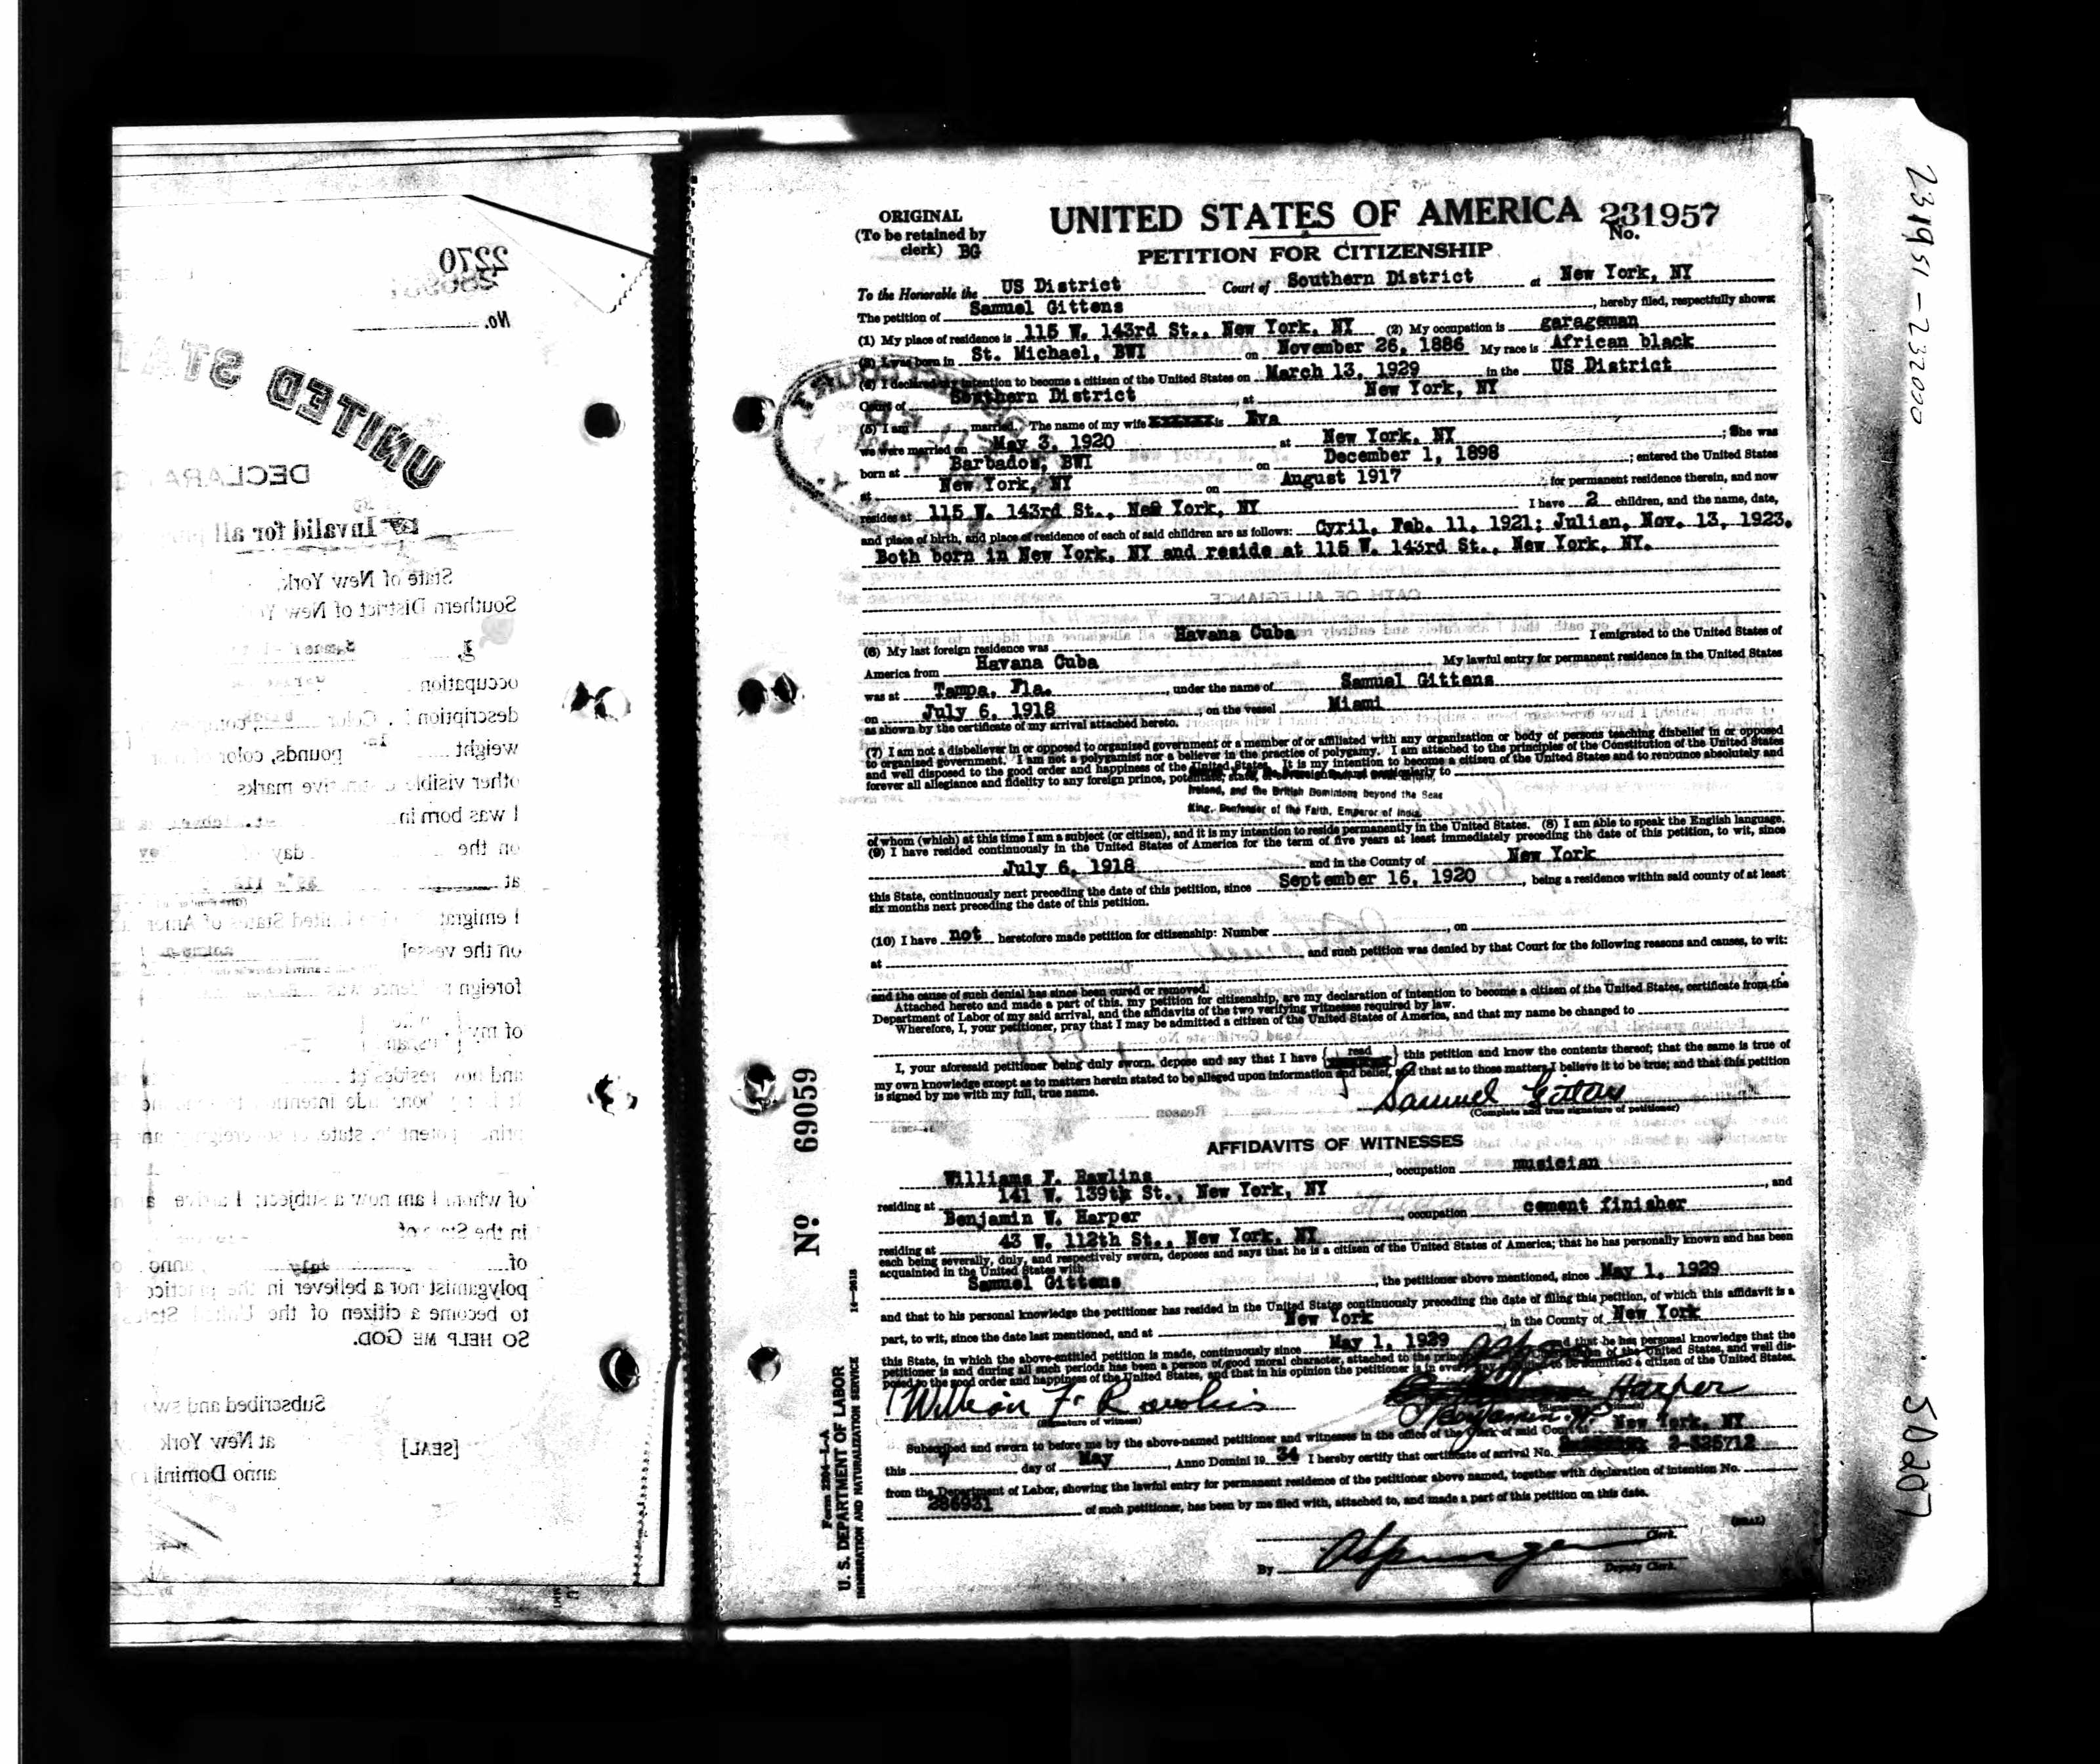 ORIGINAL
(To be retained by
clerk) BG
UNITED STATES OF AMERICA
No. 231957
PETITION FOR CITIZENSHIP
To the Honorable the US District Court of Southern District at New York, NY
The petition of Samuel Gittens, hereby filed, respectfully shows:
(1) My place of residence is 115 W. 143rd St., New York, NY (2) My occupation is garageman
(3) I was born in St. Michael, BWI on November 26, 1886 My race is African black
(4) I declared my intention to become a citizen of the United States on March 13, 1929 in the US District
Court of Southern District, at New York, NY
(5) I am married. The name of my wife is Eva
we were married on May 3, 1920 at New York, NY; She was
born at Barbados, BWI on December 1, 1898; entered the United States
at New York, NY on August 1917 for permanent residence therein, and now
resides at 115 W. 143rd St., New York, NY I have 2 children, and the name, date,
and place of birth, and place of residence of each of said children are as follows: Cyril, Feb. 11, 1921; Julian, Nov. 13, 1923.
Both born in New York, NY and reside at 115 W. 143rd St., New York, NY.
(6) My last foreign residence was Havana Cuba I emigrated to the United States of
America from Havana Cuba My lawful entry for permanent residence in the United States
was at Tampa, Fla., under the name of Samuel Gittens
on July 6, 1918, on the vessel Miami
as shown by the certificate of my arrival attached hereto.
(7) I am not a disbeliever in or opposed to organized government or a member of or affiliated with any organization or body of persons teaching disbelief in or opposed
to organized government. I am not a polygamist nor a believer in the practice of polygamy. I am attached to the principles of the Constitution of the United States
and well disposed to the good order and happiness of the United States. It is my intention to become a citizen of the United States and to renounce absolutely and
forever all allegiance and fidelity to any foreign prince, potentate, state, or sovereignty, and particularly to
Ireland, and the British Dominions beyond the Seas
King, Defender of the Faith, Emperor of India
of whom (which) at this time I am a subject (or citizen), and it is my intention to reside permanently in the United States. (8) I am able to speak the English language.
(9) I have resided continuously in the United States of America for the term of five years at least immediately preceding the date of this petition, to wit, since
July 6, 1918 and in the County of New York
this State, continuously next preceding the date of this petition, since September 16, 1920, being a residence within said county of at least
six months next preceding the date of this petition.
(10) I have not heretofore made petition for citizenship: Number , on
at and such petition was denied by that Court for the following reasons and causes, to wit:
and the cause of such denial has since been cured or removed.
Attached hereto and made a part of this, my petition for citizenship, are my declaration of intention to become a citizen of the United States, certificate from the
Department of Labor of my said arrival, and the affidavits of the two verifying witnesses required by law.
Wherefore, I, your petitioner, pray that I may be admitted a citizen of the United States of America, and that my name be changed to
I, your aforesaid petitioner being duly sworn, depose and say that I have { read } this petition and know the contents thereof; that the same is true of
my own knowledge except as to matters herein stated to be alleged upon information and belief, and that as to those matters I believe it to be true; and that this petition
is signed by me with my full, true name.
Samuel Gittens
(Complete and true signature of petitioner)
AFFIDAVITS OF WITNESSES
Williams F. Rawlins, occupation musician
residing at 141 W. 139th St., New York, NY, and
Benjamin W. Harper, occupation cement finisher
residing at 43 W. 112th St., New York, NY
each being severally, duly, and respectively sworn, deposes and says that he is a citizen of the United States of America; that he has personally known and has been
acquainted in the United States with
Samuel Gittens, the petitioner above mentioned, since May 1, 1929
and that to his personal knowledge the petitioner has resided in the United States continuously preceding the date of filing this petition, of which this affidavit is a
part, to wit, since the date last mentioned, and at New York, in the County of New York
this State, in which the above-entitled petition is made, continuously since May 1, 1929 and that he has personal knowledge that the
petitioner is and during all such periods has been a person of good moral character, attached to the of the United States, and well dis-
posed to the good order and happiness of the United States, and that in his opinion the petitioner is in every to be admitted a citizen of the United States.
William F. Rawlins
(Signature of witness)
Benjamin W. Harper
Subscribed and sworn to before me by the above-named petitioner and witnesses in the office of the Clerk of said Court at New York, NY
this 7 day of May, Anno Domini 19 34 I hereby certify that certificate of arrival No. 2-525712
from the Department of Labor, showing the lawful entry for permanent residence of the petitioner above named, together with declaration of intention No.
286931 of such petitioner, has been by me filed with, attached to, and made a part of this petition on this date.
(SEAL)
Clerk.
By Deputy Clerk.
No 69059
14-2618
Form 2204-L-A
U. S. DEPARTMENT OF LABOR
IMMIGRATION AND NATURALIZATION SERVICE
231951-232000
5D207
2270
No.
UNITED STA
DECLARA
Invalid for all
State of New York,
Southern District of New Y
I,
occupation
description Color
weight pounds, color of
other visible distinctive marks
I was born in
on the day
at
I emigrat United States of Amer
on the vessel
foreign residence was
of my
and now resides at
of whom I am now a subject; I arrive
in the State of
of July anno
polygamist nor a believer in the practice
to become a citizen of the United States
SO HELP ME GOD.
Subscribed and sw
[SEAL] at New York
anno Domini